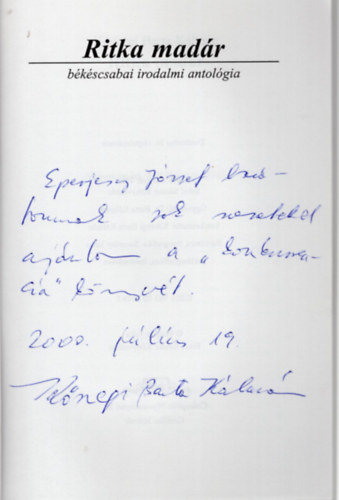 Ritka madár
békéscsabai irodalmi antológia
Eperjesy József bará-
tomnak sok szeretettel
ajánlom a „konkuren-
cia” könyvét.
2000. július 19.
Kőszegi Barta Kálmán